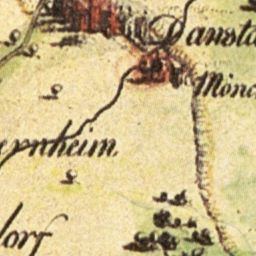 Dansta
Mönc
ernheim
dorf